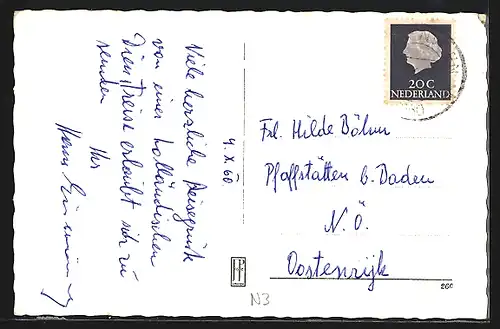 4. X. 60.
Viele herzliche Reisegrüße
von einer holländischen
Dienstreise erlaubt sich zu
senden
Ihr
Hans
20 C
NEDERLAND
Frl. Hilde Böhm
Pfaffstätten b. Baden
N. Ö.
Oostenrijk
N3
260